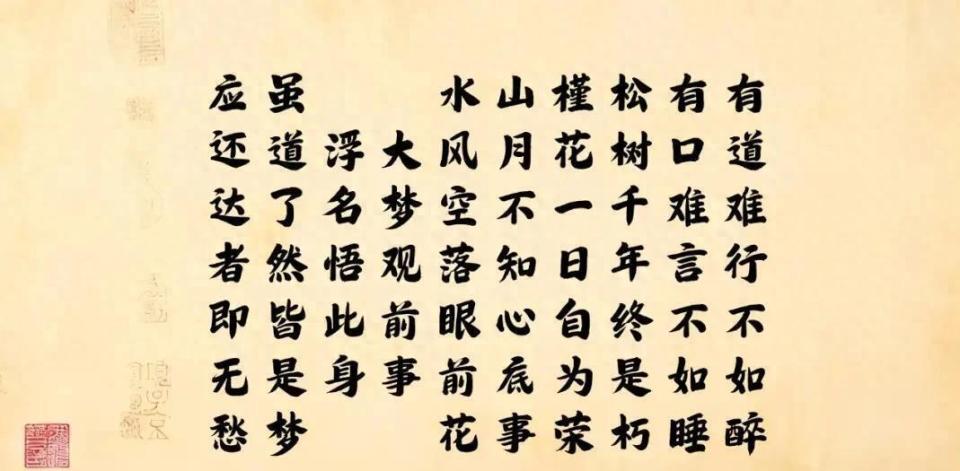 有道难行不如醉
有口难言不如睡
松树千年终是朽
槿花一日自为荣
山月不知心底事
水风空落眼前花
大梦观前事
浮名悟此身
虽道了然皆是梦
应还达者即无愁